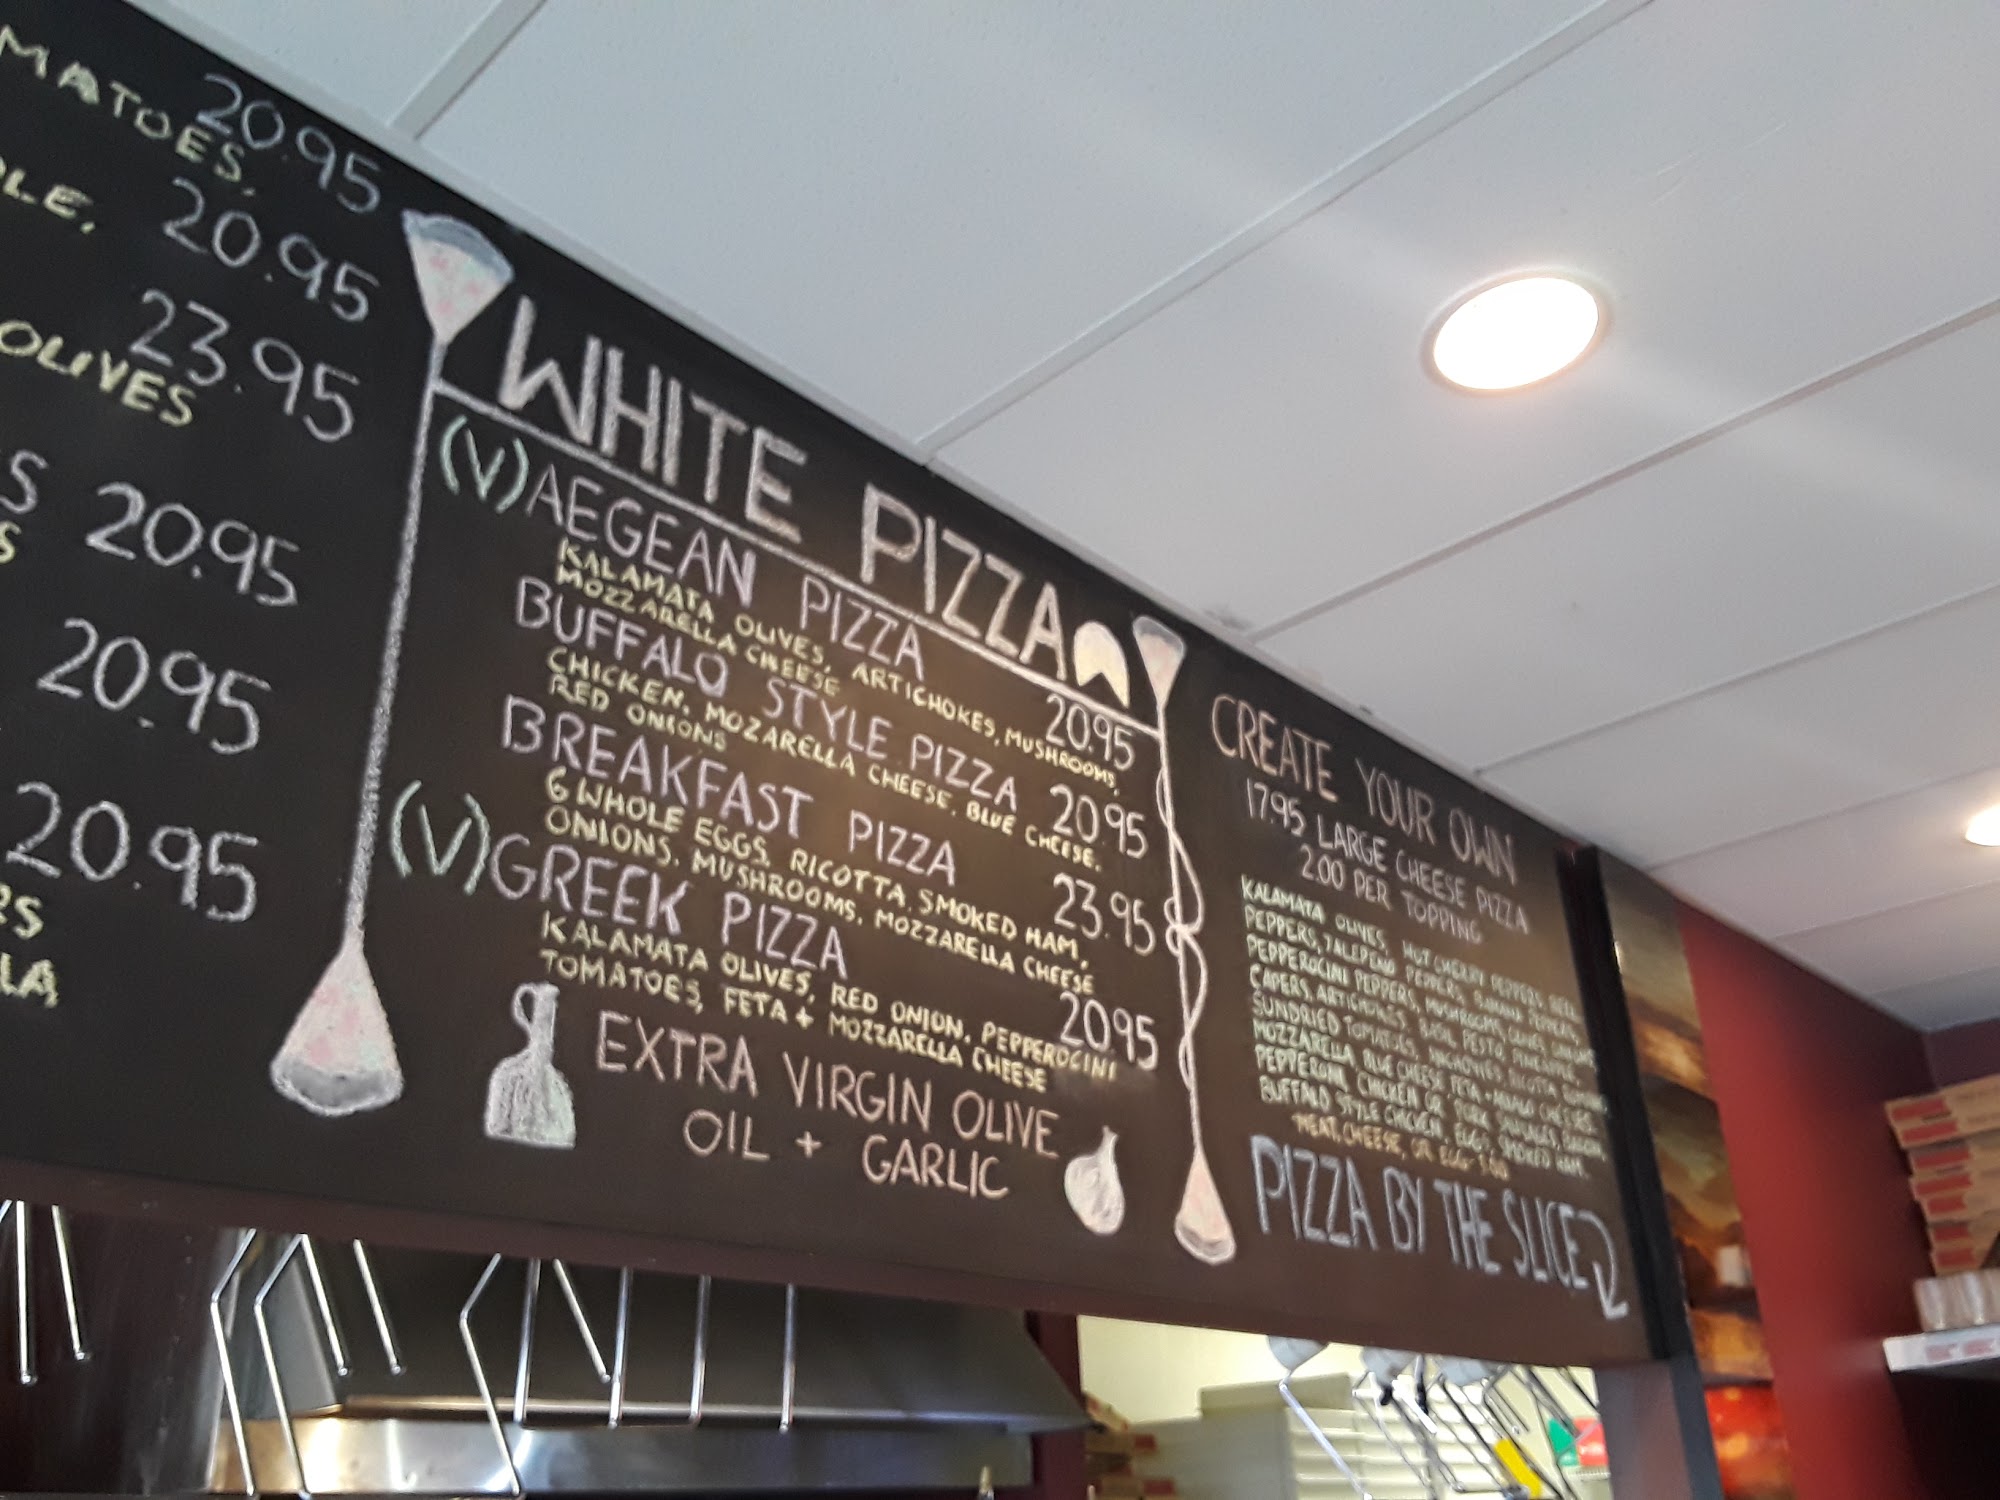 20.95
MATOES,
20.95
OLE,
23.95
OLIVES
S 20.95
S
20.95
20.95
RS
LA,
WHITE PIZZA
(V) AEGEAN PIZZA 20.95
KALAMATA OLIVES, ARTICHOKES, MUSHROOMS,
MOZZARELLA CHEESE
BUFFALO STYLE PIZZA 20.95
CHICKEN, MOZARELLA CHEESE, BLUE CHEESE,
RED ONIONS
BREAKFAST PIZZA 23.95
6 WHOLE EGGS, RICOTTA, SMOKED HAM,
ONIONS, MUSHROOMS, MOZZARELLA CHEESE
(V) GREEK PIZZA 20.95
KALAMATA OLIVES, RED ONION, PEPPEROCINI
TOMATOES, FETA + MOZZARELLA CHEESE
EXTRA VIRGIN OLIVE
OIL + GARLIC
CREATE YOUR OWN
17.95 LARGE CHEESE PIZZA
2.00 PER TOPPING
KALAMATA OLIVES, HOT CHERRY PEPPERS,
PEPPERS, JALEPENO PEPPERS, BANANA PEPPERS,
PEPPEROCINI PEPPERS, MUSHROOMS,
CAPERS, ARTICHOKES, BASIL, PESTO, PINEAPPLE,
SUNDRIED TOMATOES, ANCHOVIES, RICOTTA,
MOZZARELLA, BLUE CHEESE, FETA + CHEESES,
PEPPERONI, CHICKEN OR PORK SAUSAGE, BACON,
BUFFALO STYLE CHICKEN, EGGS, SMOKED HAM,
MEAT, CHEESE, OR EGG 3.00
PIZZA BY THE SLICE